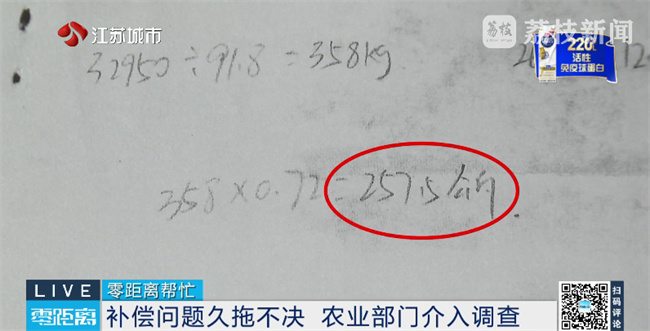 江苏城市
荔枝 荔枝新闻
32950÷91.8=358kg
220亿
活性
免疫球蛋白
358×0.72=257.5公斤
LIVE 零距离帮忙
零距离 补偿问题久拖不决 农业部门介入调查
扫码评论